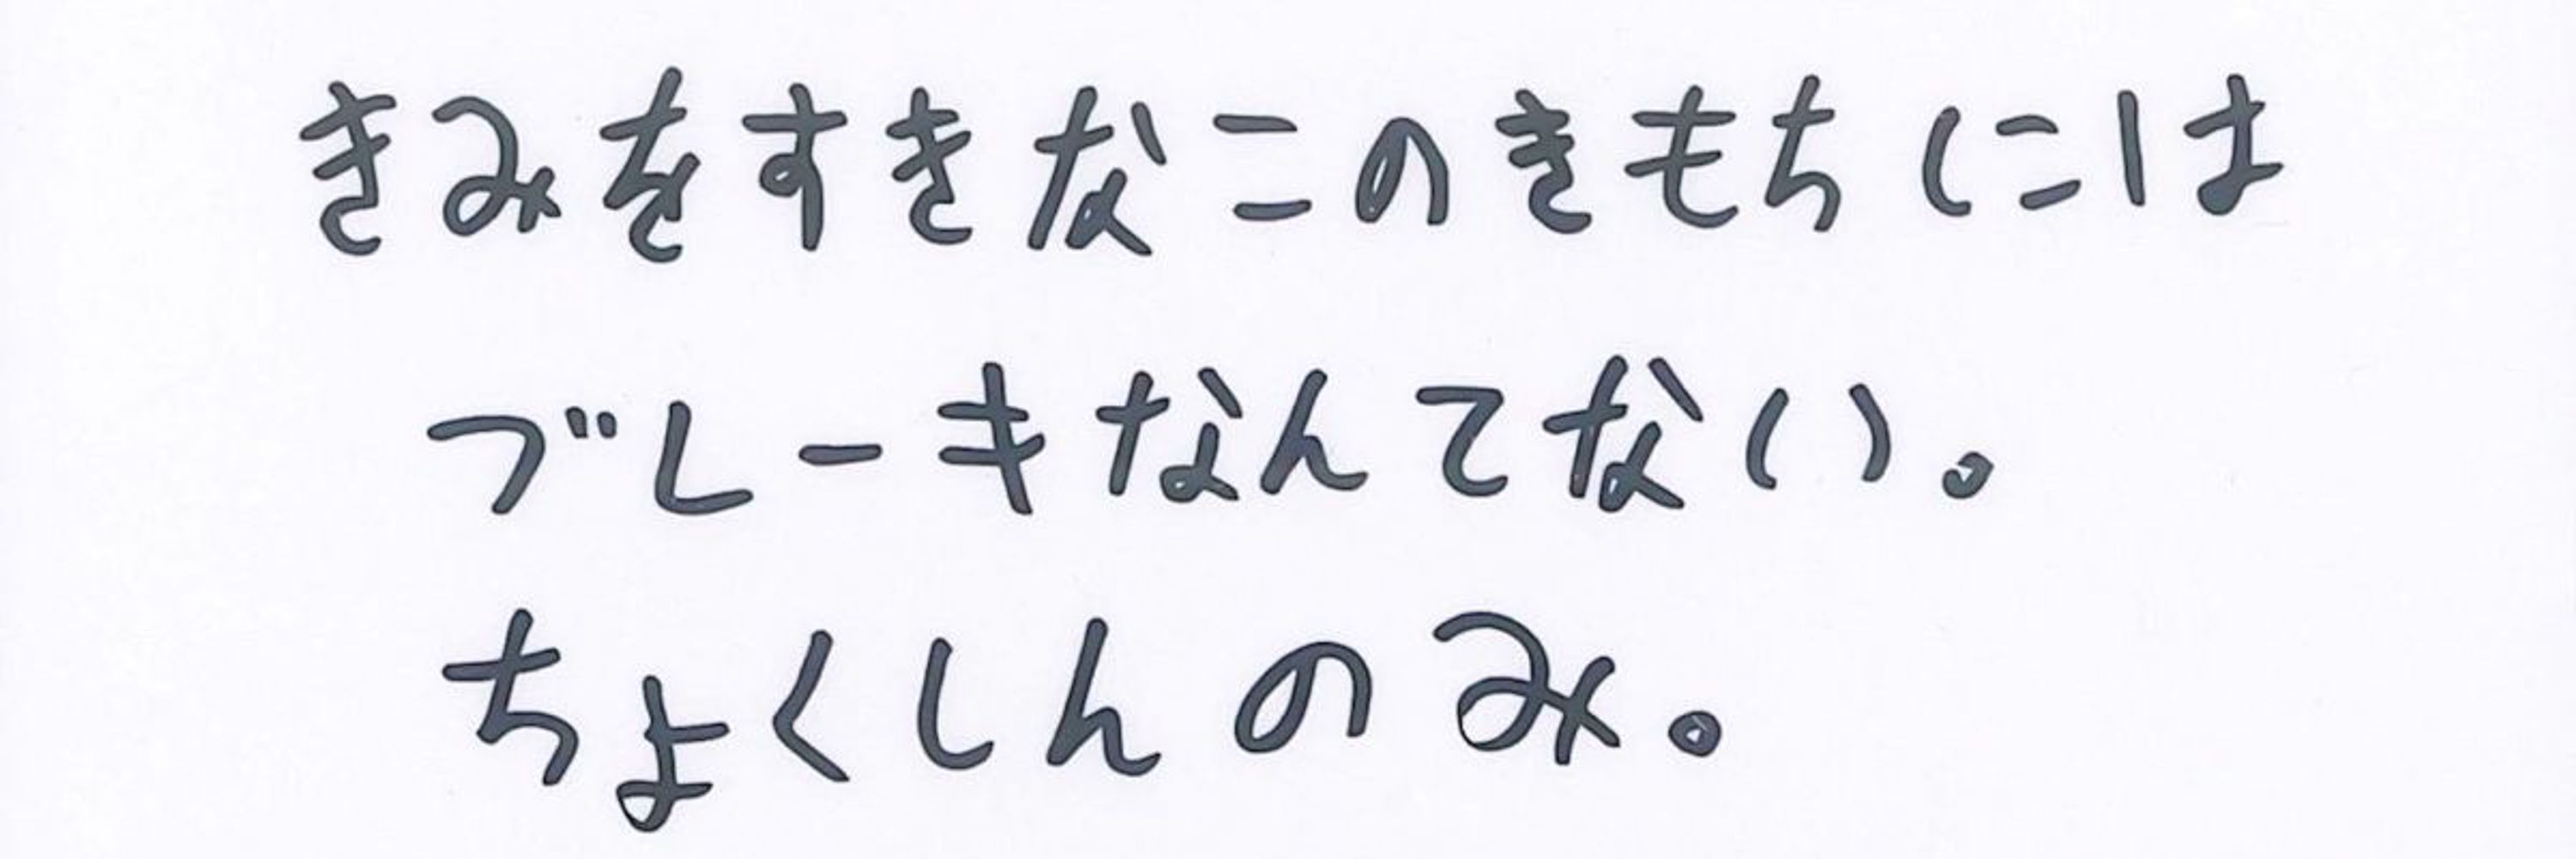 きみをすきなこのきもちには
ブレーキなんてない。
ちょくしんのみ。